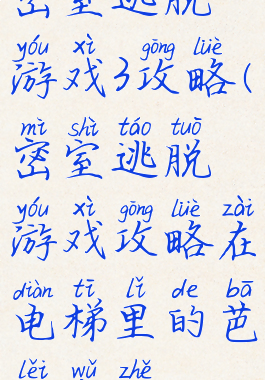 密室逃脱
yóu xì gōng lüè
游戏3攻略(
mì shì táo tuō
密室逃脱
yóu xì gōng lüè zài
游戏攻略在
diàn tī lǐ de bā
电梯里的芭
lěi wǔ zhě